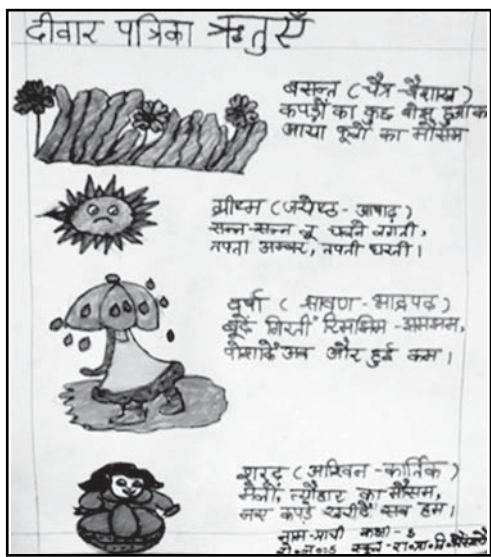 दीवार पत्रिका ऋतुएँ
बसन्त (चैत्र-बैशाख)
कपड़ों का कुछ बोझ हुआ कम
आया फूलों का मौसम
ग्रीष्म (ज्येष्ठ - आषाढ़)
सन्न-सन्न लू चलने लगती,
तपता अम्बर, तपती धरती।
वर्षा ( श्रावण - भाद्रपद )
बूंदें गिरती रिमझिम - झमझम,
पोशाकें अब और हुई कम।
शरद (अश्विन - कार्तिक)
मेलों, त्यौहार का मौसम,
नए कपड़े खरीदें सब हम।
नाम-प्राची कक्षा - 5
रो. न. :5 स्कूल - रा. प्रा. वि.